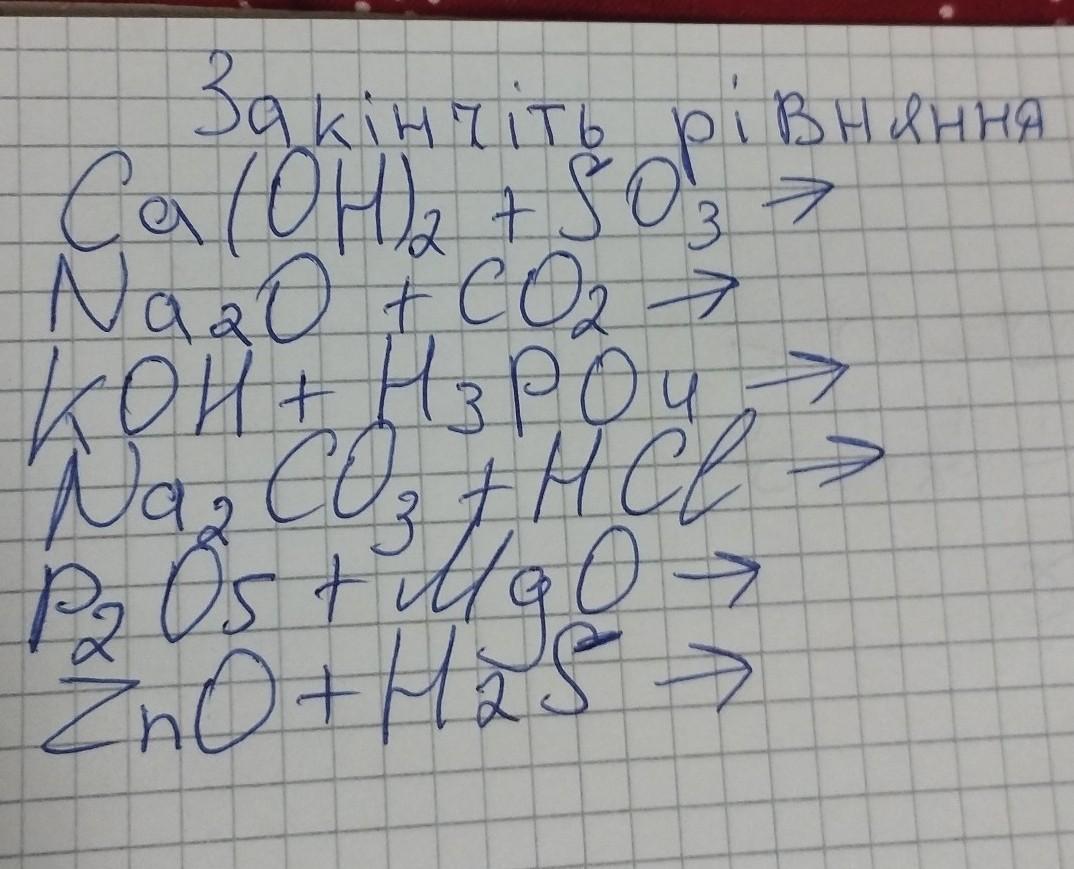 Закінчіть рівняння
Ca(OH)₂ + SO₃ →
Na₂O + CO₂ →
KOH + H₃PO₄ →
Na₂CO₃ + HCl →
P₂O₅ + MgO →
ZnO + H₂S →